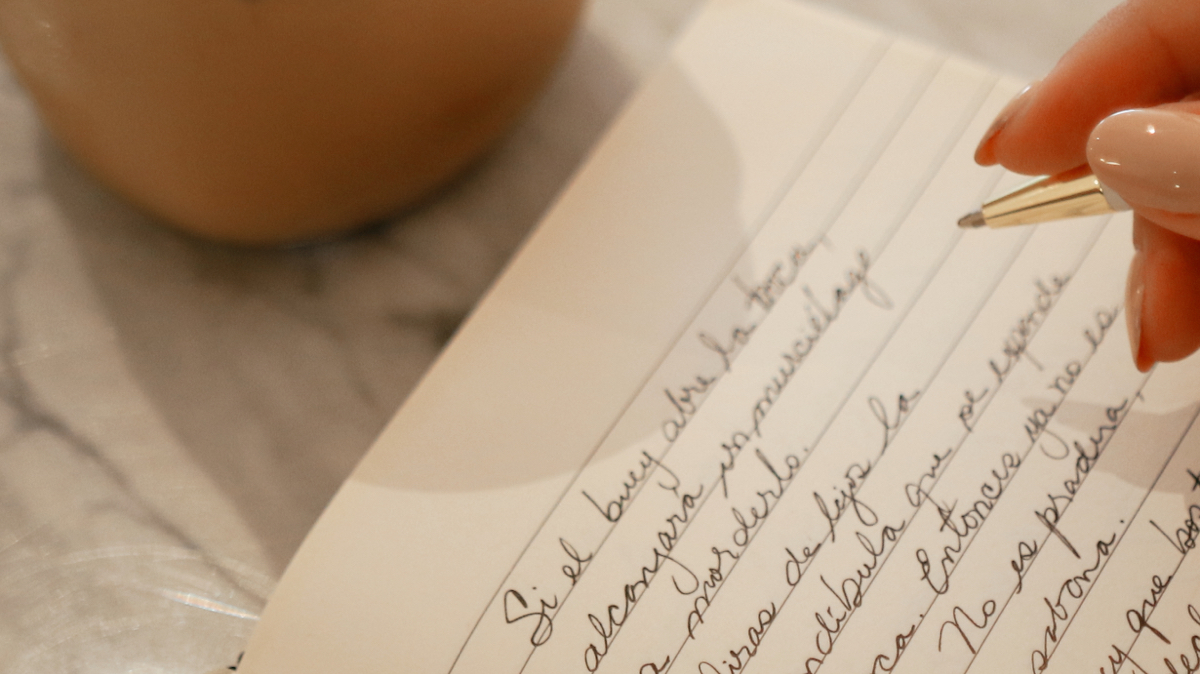 Si el buey abre la boca,
alcanzará un murciélago
a morderlo.
Miras de lejos la
mandíbula que se esponde
ca. Entonces ya no es
No es pradera,
sabana.
y que